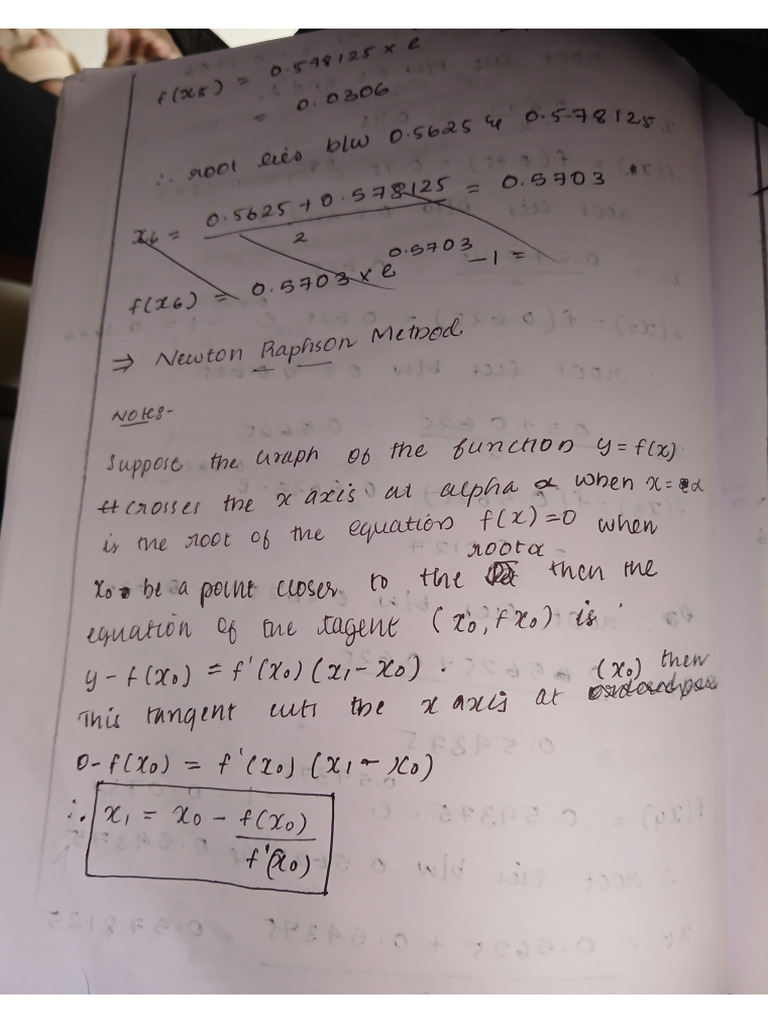 f(x5) = 0.578125 × e
= 0.0306
∴ root lies b/w 0.5625 & 0.578125
x6 = 0.5625 + 0.578125 / 2 = 0.5703
f(x6) = 0.5703 × e^0.5703 - 1 =
⇒ Newton Raphson Method
Notes-
Suppose the Graph of the function y = f(x)
crosses the x axis at alpha α when x = α
is the root of the equation f(x) = 0 when
root α
x0 be a point closer to the then the
equation of the tagent (x0, fx0) is
y - f(x0) = f'(x0) (x1 - x0).
(x0) then
This tangent cuts the x axis at
0 - f(x0) = f'(x0) (x1 - x0)
∴ x1 = x0 - f(x0) / f'(x0)